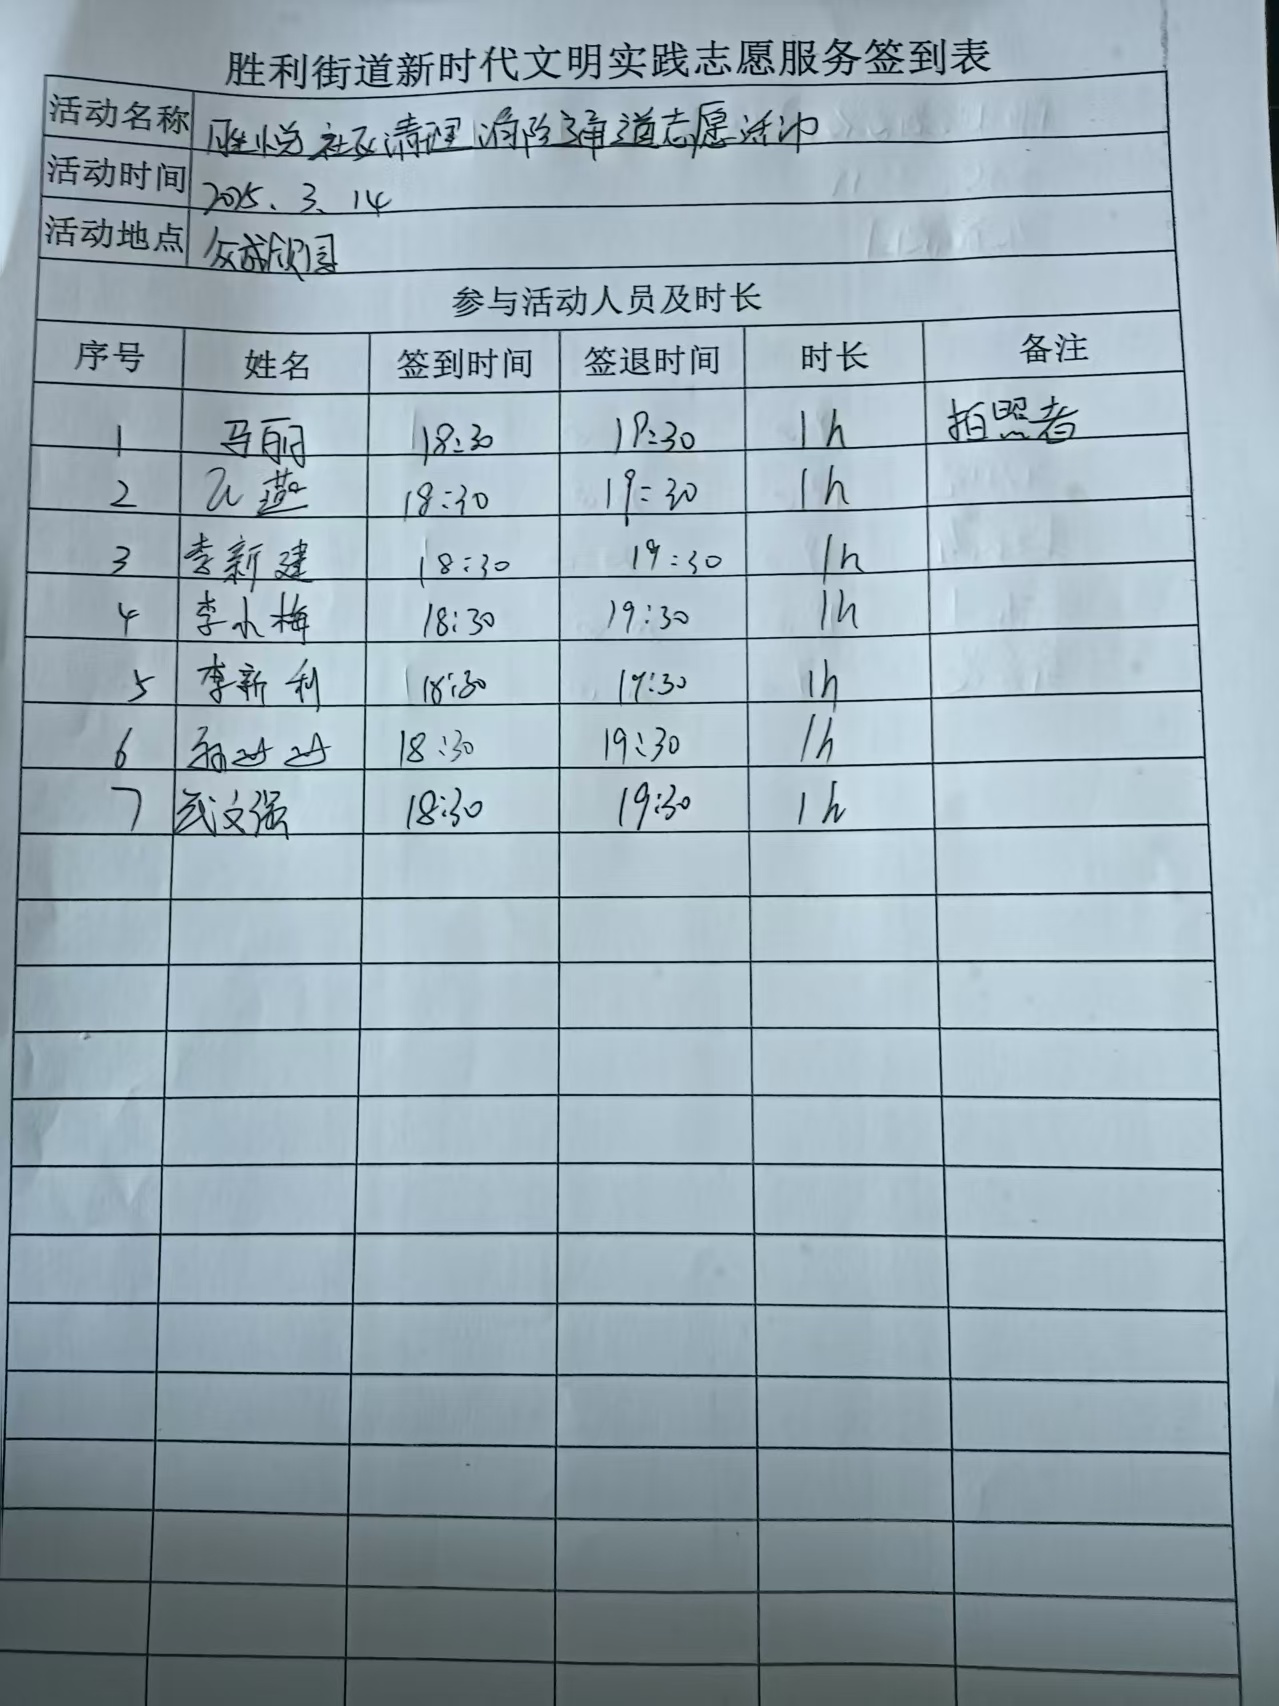 胜利街道新时代文明实践志愿服务签到表
活动名称 胜悦社区清理消防通道志愿活动
活动时间 2025.3.14
活动地点
参与活动人员及时长
序号 姓名 签到时间 签退时间 时长 备注
1 马丽 18:30 19:30 1h 拍照者
2 18:30 19:30 1h
3 李新建 18:30 19:30 1h
4 李水梅 18:30 19:30 1h
5 李新利 18:30 19:30 1h
6 18:30 19:30 1h
7 武文强 18:30 19:30 1h